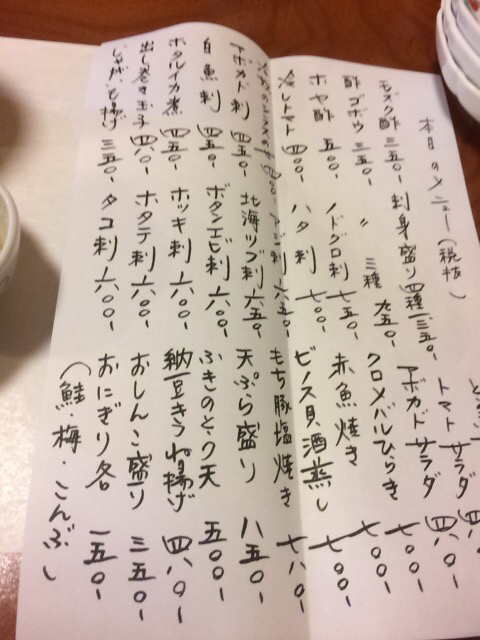 本日のメニュー(税抜)
モズク酢 三五〇-
酢ゴボウ 三五〇-
ホヤ酢 五〇〇-
冷しトマト 四〇〇-
四〇〇-
アボカド刺 四五〇-
白魚刺 四五〇-
ホタルイカ煮 四五〇-
出し巻き玉子 四八〇-
じゃがいも揚げ 三五〇-
刺身盛り四種 一三五〇-
〃 三種 九五〇-
ノドグロ刺 七五〇-
ハタ刺 七〇〇-
刺 六五〇-
北海ツブ刺 六五〇-
ボタンエビ刺 六〇〇-
ホッキ刺 六〇〇-
ホタテ刺 六〇〇-
タコ刺 六〇〇-
サラダ 四八
トマトサラダ 四八〇-
アボカドサラダ 七〇〇-
クロメバルひらき 七〇〇-
赤魚焼き 七〇〇-
ビノス貝酒蒸し 七〇〇-
もち豚塩焼き 七八〇-
天ぷら盛り 八五〇-
ふきのとう天 五〇〇-
納豆きつね揚げ 四八〇-
おしんこ盛り 三五〇-
おにぎり各 一五〇-
(鮭・梅・こんぶ)